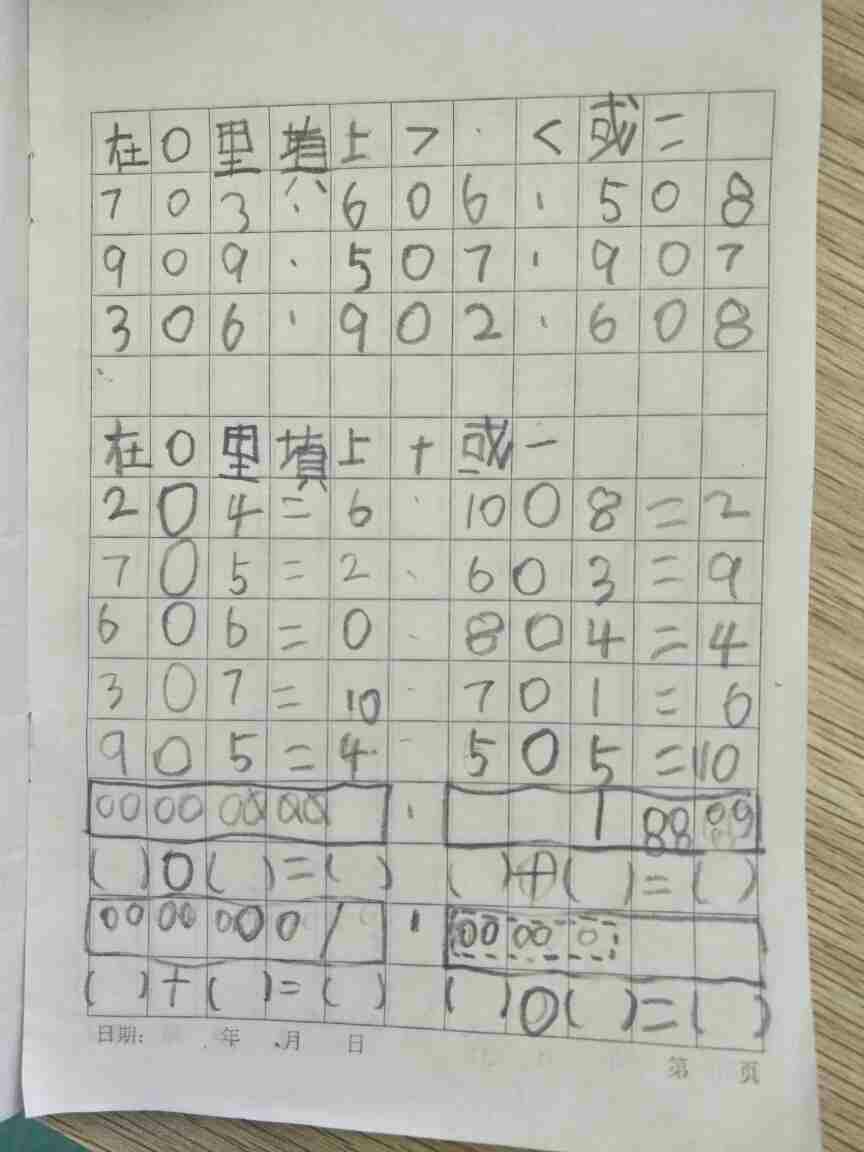 在○里填上>·<或=
7○3·6○6·5○8
9○9·5○7·9○7
3○6·9○2·6○8
在○里填上+或-
2○4=6·10○8=2
7○5=2·6○3=9
6○6=0·8○4=4
3○7=10·7○1=6
9○5=4·5○5=10
( )○( )=( ) ( )+( )=( )
( )+( )=( ) ( )○( )=( )
日期: 年 月 日
第 页